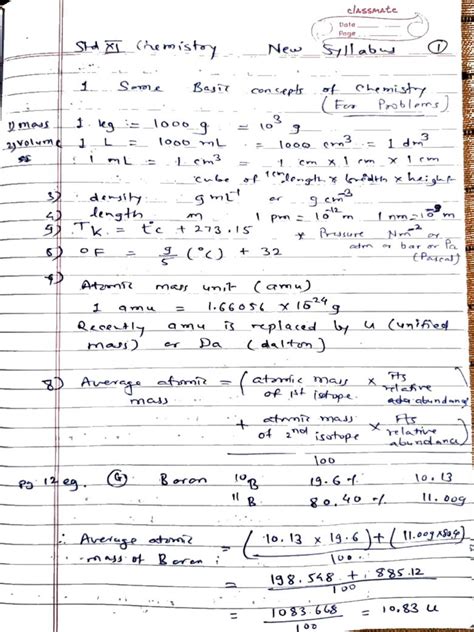 classmate
Date
Page
Std XI Chemistry New Syllabus 1
1 Some Basic concepts of Chemistry
(For Problems)
1) mass 1 kg = 1000 g = 10³ g
2) volume 1 L = 1000 mL = 1000 cm³ = 1 dm³
1 mL = 1 cm³ = 1 cm × 1 cm × 1 cm
cube of 1cm length × breadth × height
3) density g mL⁻¹ or g cm⁻³
4) length m 1 pm = 10⁻¹² m 1 nm = 10⁻⁹ m
5) TK = t°c + 273.15 * Pressure Nm⁻² or
atm or bar or Pa
(Pascal)
6) °F = 9/5 (°C) + 32
Atomic mass unit (amu)
1 amu = 1.66056 × 10⁻²⁴ g
Recently amu is replaced by u (unified
mass) or Da (dalton)
8) Average atomic mass = (atomic mass of 1st isotope × Its relative abundance)
+ (atomic mass of 2nd isotope × Its relative abundance)
100
pg 12 eg. Boron ¹⁰B 19.6 % 10.13
¹¹B 80.40 % 11.009
∴ Average atomic mass of Boron = (10.13 × 19.6) + (11.009 × 80.4)
100
= 198.548 + 885.12
100
= 1083.668 / 100 = 10.83 u